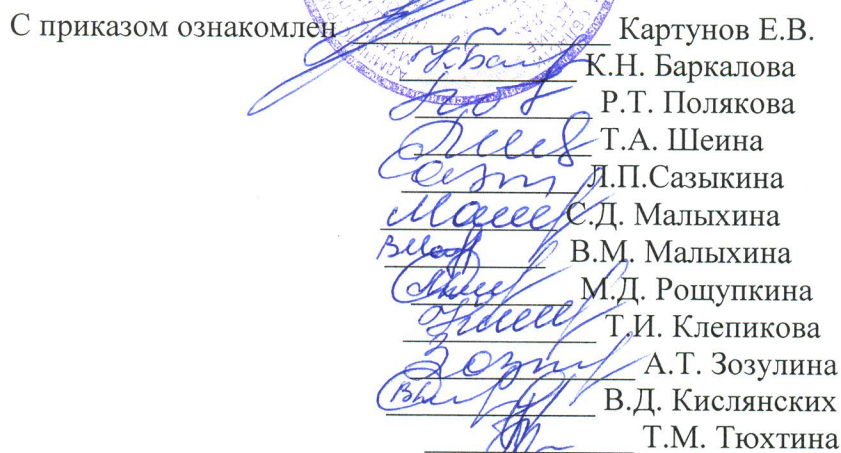 С приказом ознакомлен Картунов Е.В.
К.Н. Баркалова
Р.Т. Полякова
Т.А. Шеина
Л.П.Сазыкина
С.Д. Малыхина
В.М. Малыхина
М.Д. Рощупкина
Т.И. Клепикова
А.Т. Зозулина
В.Д. Кислянских
Т.М. Тюхтина